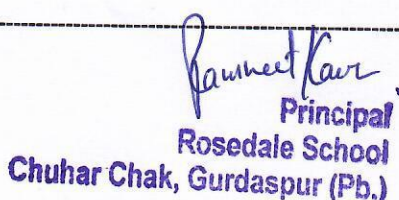 Principal
Rosedale School
Chuhar Chak, Gurdaspur (Pb.)